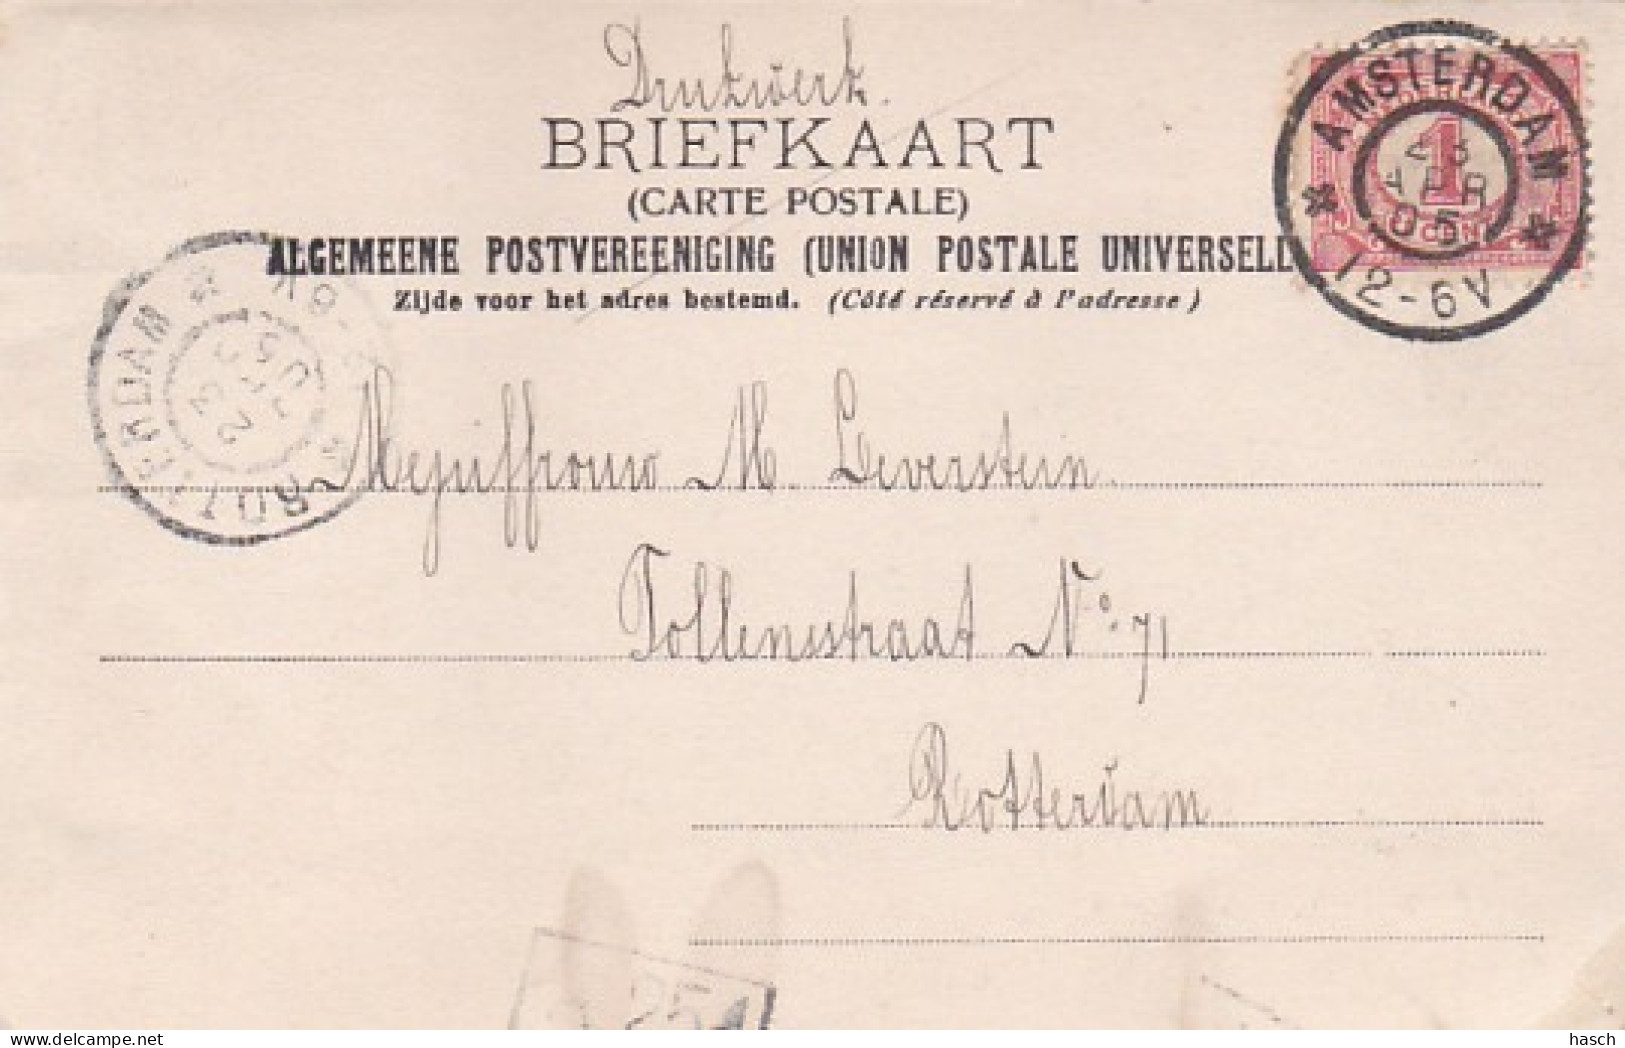 Drukwerk.
BRIEFKAART
(CARTE POSTALE)
ALGEMEENE POSTVEREENIGING (UNION POSTALE UNIVERSELL
Zijde voor het adres bestemd. (Côté réservé à l'adresse)
AMSTERDAM
23
APR
05
12-6V
1
CEN
ROTTERDAM
Mejuffrouw M. Leverstein.
Tollensstraat No: 71
Rotterdam
254
hasch
delcampe.net